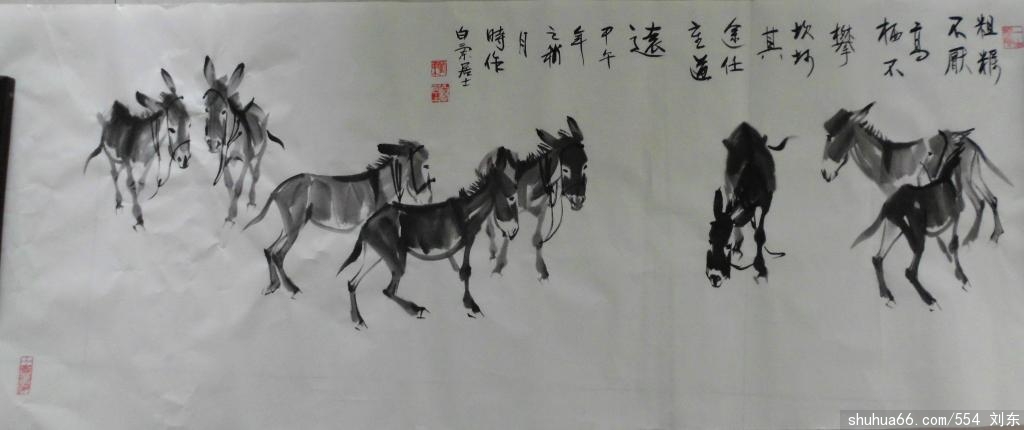 粗糲
不厌
高
栖不
攀
坎坷
其
途任
重道
遠
甲午
年
之秋
月
時作
居士
shuhua66.com/554 刘东